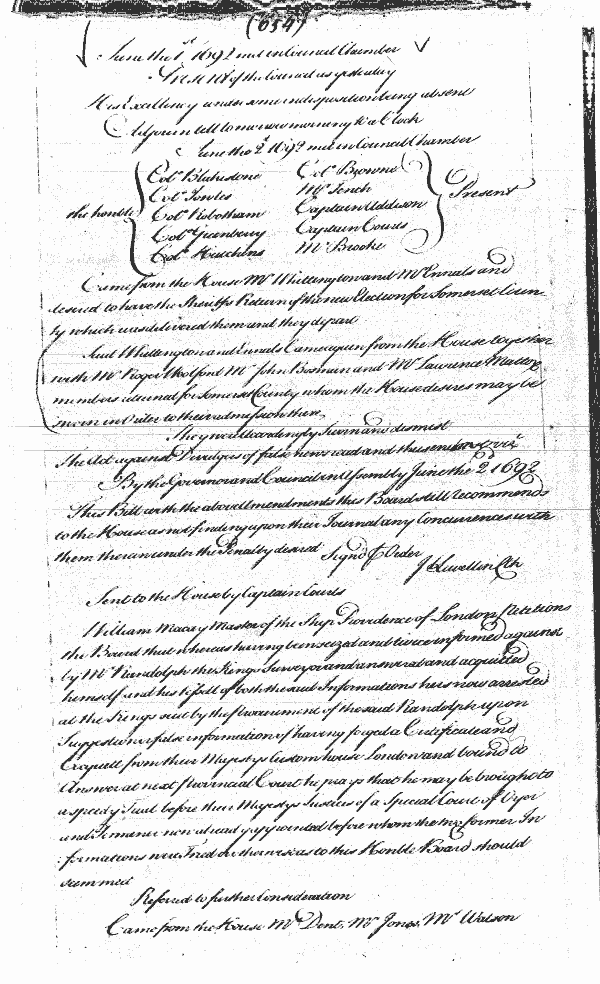 (654)
June the 1st 1692 met in Council Chamber
Present of the Council as yesterday
His Excellency under some indisposition being absent
Adjourn till to morrow morning 10 a Clock
June the 2d 1692 met in Council Chamber
the honble Colo Blakistone Colo Browne Present
Colo Jowles Mr Tench
Colo Robotham Captain Addison
Colo Greenberry Captain Courts
Colo Hutchins Mr Brooke
Came from the House Mr Whittington and Mr Ennals and
desired to have the Sheriffs Return of the new Election for Somerset Coun
ty which was delivered them and they depart
Said Whittington and Ennals Came again from the House together
with Mr Roger Wolford Mr John Bosman and Mr Lawrence
members returned for Somerset County whom the House desires may be
sworn in Order to their admission there
They were Accordingly Sworn and dismist
The Act against Divulgers of false news read and thus endorsed viz
By the Governor and Council in Assembly June the 2d 1692
This Bill with the above Amendments this Board still recommends
to the House as not finding upon their Journal any Concurrences with
them therein under the Penalty desired Signd p Order
J Llewellin Clk
Sent to the House by Captain Courts
William Macey Master of the Ship Providence of London Petitions
the Board that whereas having been seized and twice informed against
by Mr Randolph the Kings Surveyor and answered and acquitted
himself and his of both the said Informations he is now arrested
at the Kings suit by the Procurement of the said Randolph upon
Suggestion or false information of having forged a Certificate and
from their Majestys Custom house London and bound to
Answer at next Provincial Court he prays that he may be brought to
a speedy Trial before their Majestys Justices of a Special Court of Oyer
and Terminer now already appointed before whom the two former In
formations were Tried or otherwise as to this Honble Board should
seem meet
Referred to further Consideration
Came from the House Mr Dent, Mr Jones, Mr Watson